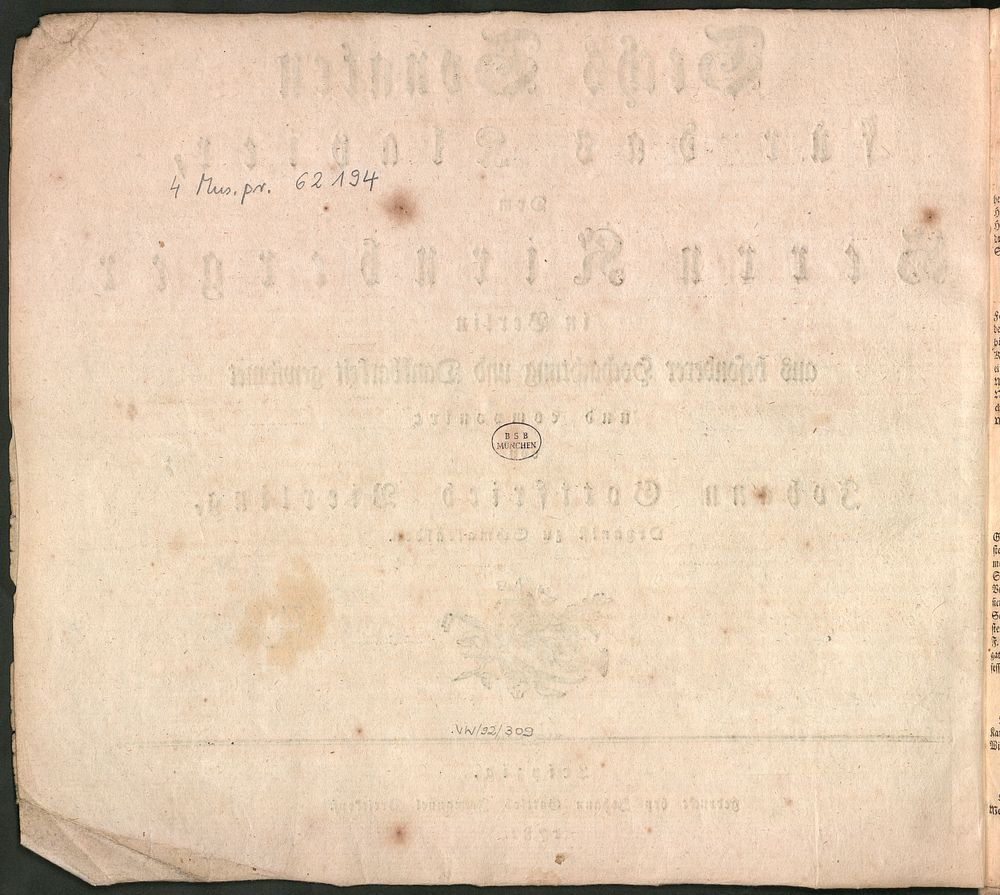 Sechs Sonaten
für das Clavier,
4 Mus.pr. 62 194
Dem
Herrn Kirnberger
in Berlin
aus besonderer Hochachtung und Dankbarkeit gewidmet
und componirt
BSB
MÜNCHEN
von
Johann Gottfried Vierling,
Organist zu Schmalkalden.
VW/92/309
Leipzig,
gedruckt bey Johann Gottlob Immanuel Breitkopf,